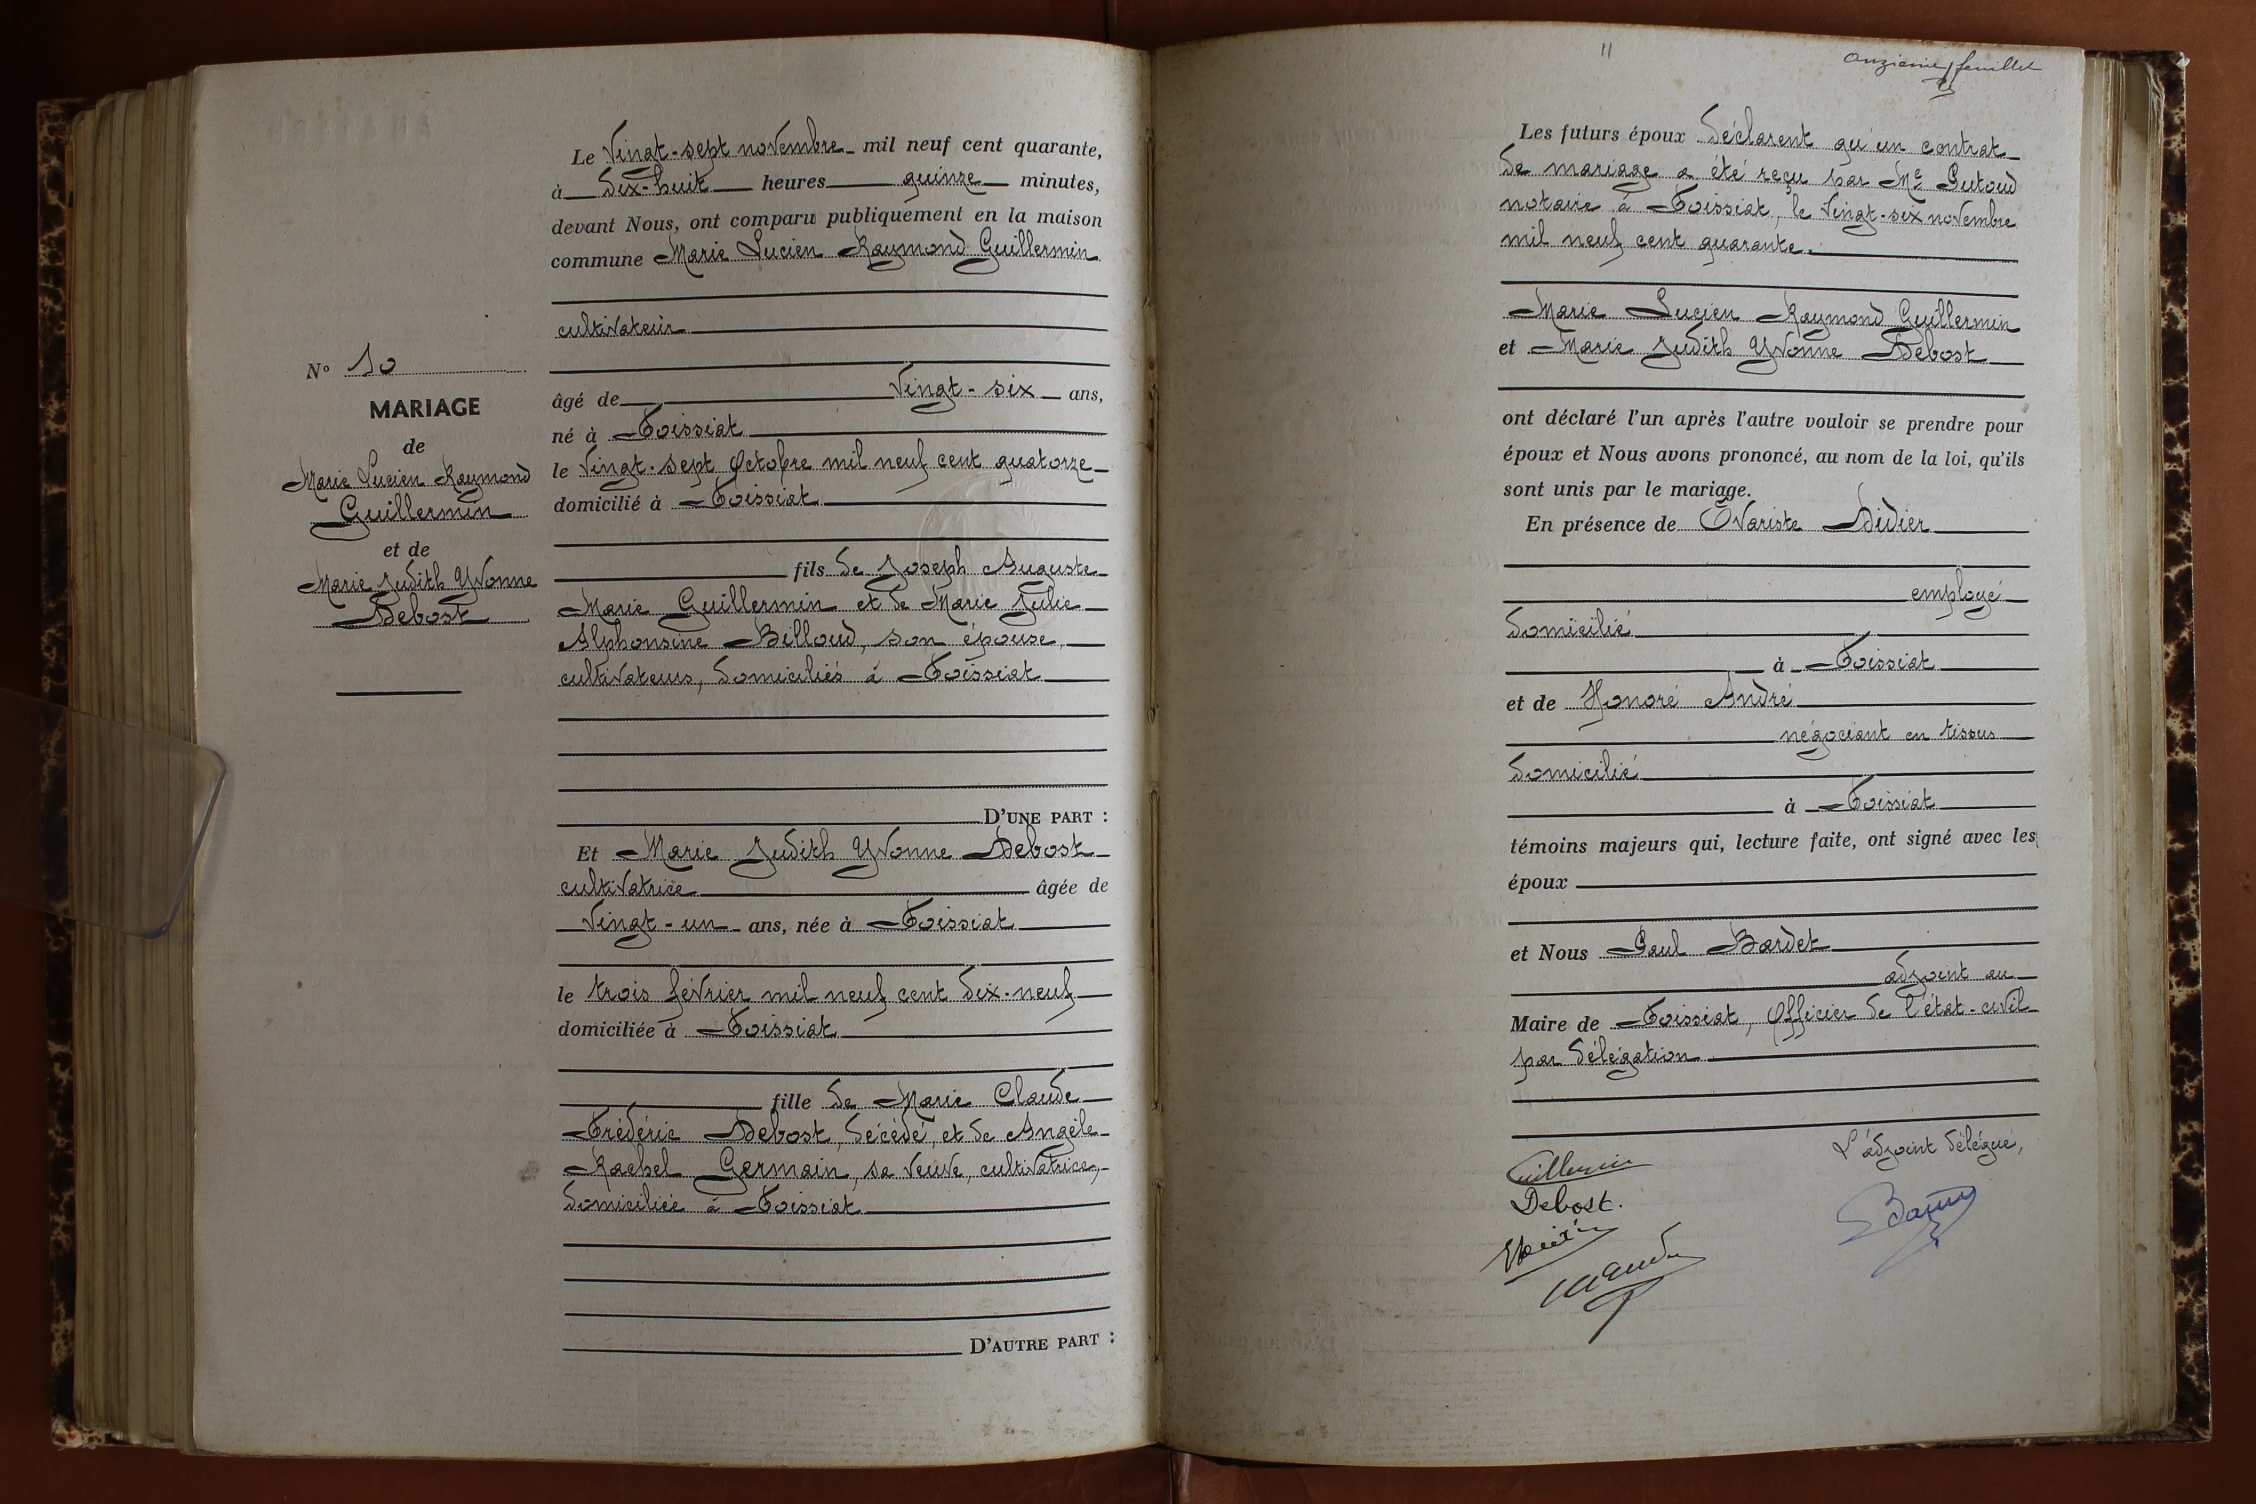 Le vingt-sept novembre mil neuf cent quarante,
à dix-huit heures quinze minutes,
devant Nous, ont comparu publiquement en la maison
commune Marie Lucien Raymond Guillermin
cultivateur
N° 10
MARIAGE
de
Marie Lucien Raymond
Guillermin
et de
Marie Judith Yvonne
Debost
âgé de vingt-six ans,
né à Foissiat
le vingt-sept Octobre mil neuf cent quatorze
domicilié à Foissiat
fils de Joseph Auguste
Marie Guillermin et de Marie Julie
Alphonsine Billoud, son épouse,
cultivateurs, domiciliés à Foissiat
D'UNE PART :
Et Marie Judith Yvonne Debost
cultivatrice âgée de
vingt-un ans, née à Foissiat
le trois février mil neuf cent dix-neuf
domiciliée à Foissiat
fille de Marie Claude
Frédéric Debost, décédé, et de Angèle
Rachel Germain, sa veuve, cultivatrice,
domiciliée à Foissiat
D'AUTRE PART :
11
onzième feuillet
Les futurs époux déclarent qu'un contrat
de mariage a été reçu par Me Putoud
notaire à Foissiat, le vingt-six novembre
mil neuf cent quarante.
Marie Lucien Raymond Guillermin
et Marie Judith Yvonne Debost
ont déclaré l'un après l'autre vouloir se prendre pour
époux et Nous avons prononcé, au nom de la loi, qu'ils
sont unis par le mariage.
En présence de Evariste Didier
employé
domicilié
à Foissiat
et de Honoré André
négociant en tissus
domicilié
à Foissiat
témoins majeurs qui, lecture faite, ont signé avec les
époux
et Nous Paul Bardet
adjoint au
Maire de Foissiat, Officier de l'état-civil
par délégation
L'adjoint délégué,
Guillermin
Debost.